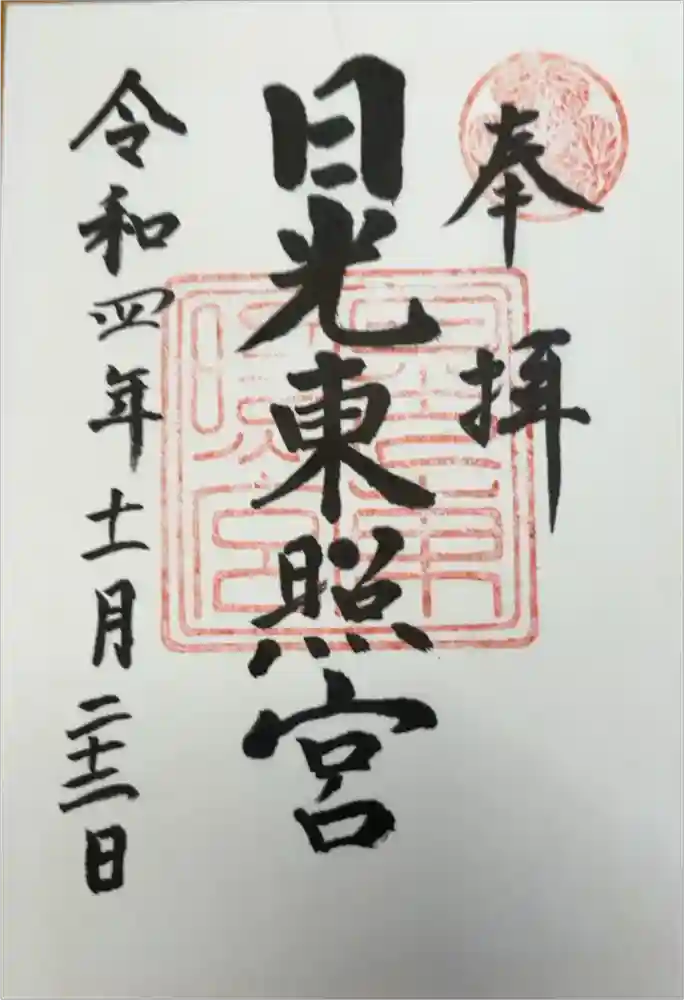 奉拝
日光東照宮
令和四年十一月二十二日